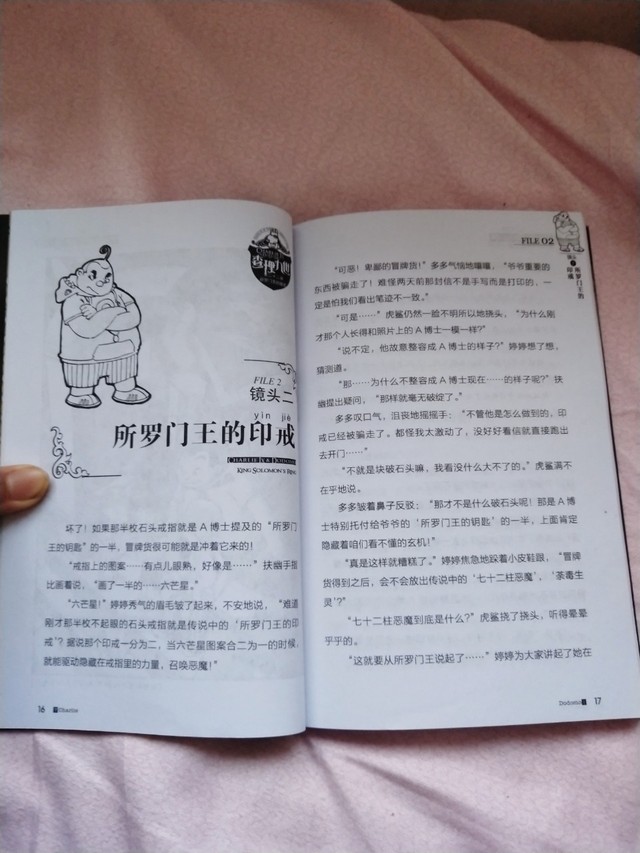 查理九世
FILE 2
镜头二
yìn jiè
所罗门王的印戒
CHARLIE IX & DODOMO
KING SOLOMON'S RING
坏了！如果那半枚石头戒指就是 A 博士提及的“所罗门
王的钥匙”的一半，冒牌货很可能就是冲着它来的！
“戒指上的图案……有点儿眼熟，好像是……”扶幽手指
比画着说，“画了一半的……六芒星。”
“六芒星！”婷婷秀气的眉毛皱了起来，不安地说，“难道
刚才那半枚不起眼的石头戒指就是传说中的‘所罗门王的印
戒’？据说那个印戒一分为二，当六芒星图案合二为一的时候，
就能驱动隐藏在戒指里的力量，召唤恶魔！”
16
Charlie
FILE 02
所罗门王的
印戒
“可恶！卑鄙的冒牌货！”多多气恼地嚷嚷，“爷爷重要的
东西被骗走了！难怪两天前那封信不是手写而是打印的，一
定是怕我们看出笔迹不一致。”
“可是……”虎鲨仍然一脸不明所以地挠头，“为什么刚
才那个人长得和照片上的 A 博士一模一样？”
“说不定，他故意整容成 A 博士的样子？”婷婷想了想，
猜测道。
“那……为什么不整容成 A 博士现在……的样子呢？”扶
幽提出疑问，“那样就毫无破绽了。”
多多叹口气，沮丧地摇摇手：“不管他是怎么做到的，印
戒已经被骗走了。都怪我太激动了，没好好看信就直接跑出
去开门……”
“不就是块破石头嘛，我看没什么大不了的。”虎鲨满不
在乎地说。
多多皱着鼻子反驳：“那才不是什么破石头呢！那是 A 博
士特别托付给爷爷的‘所罗门王的钥匙’的一半，上面肯定
隐藏着咱们看不懂的玄机！”
“真是这样就糟糕了。”婷婷焦急地跺着小皮鞋跟，“冒牌
货得到它之后，会不会放出传说中的‘七十二柱恶魔’，‘荼毒生
灵’？”
“七十二柱恶魔到底是什么？”虎鲨挠了挠头，听得晕晕
乎乎的。
“这就要从所罗门王说起了……”婷婷为大家讲起了她在
Dodomo
17